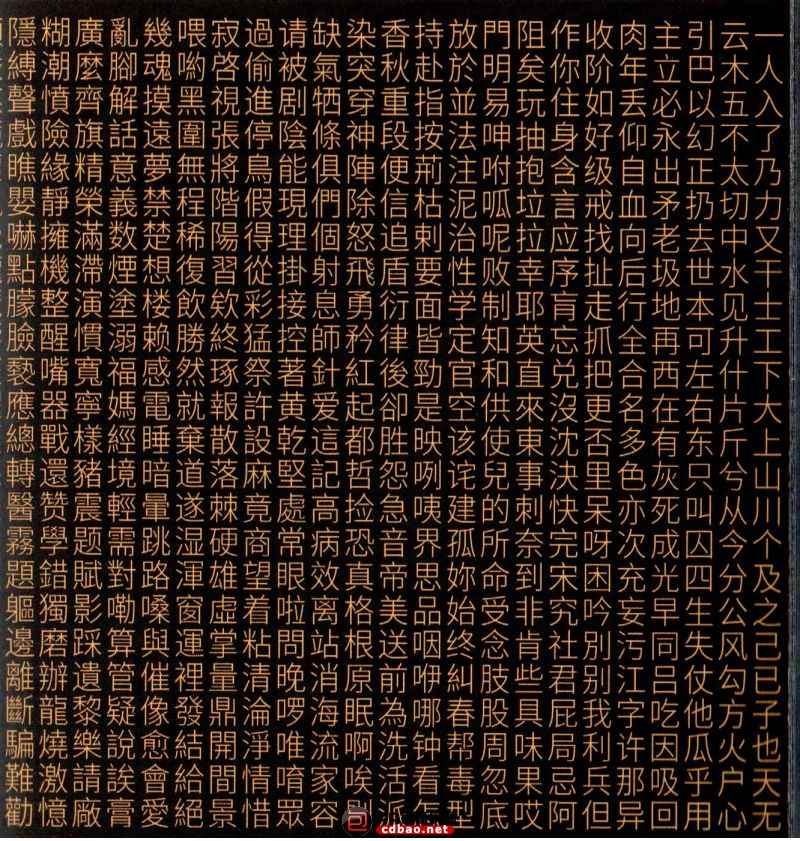 一人入了乃力又干士工下大上山川个及之己已子也天无
云木五不太切中水见升什片斤兮从今分公风勾方火户心
引巴以幻正扔去世本可左右东只叫囚四生失仗他瓜乎用
主立必永出矛老圾地再西在有灰死成光早同吕吃因吸回
肉年丢仰自血向后行全合名多色亦次充妄污江字许那异
收阶如好级戒找扯走抓把更否里呆呀困吟別别我利兵但
作你住身含言应序肓忘兑沒沈決快完宋究社君屁局忌阿
阻矣玩抽抱垃拉幸耶英直來東事刺奈到非肯些具味果哎
門明易呻咐呱呢败制知和供使兒的所命受念肢股周忽底
放於並法注泥治性学定官空该诧建孤妳始终糾春帮毒型
持赴指按荊枯剌要面皆勁是映咧咦界思品咽咿哪钟看怎
香秋重段便信追盾衍律後卻胜怨急音帝美送前為洗活派
染突穿神陣除怒飛勇矜紅起都哲捡恐真格根原眠啊唉
缺氣牺條俱們個射息師針爱這記高病效离站消海流家容
请被剧陰能現理掛接控著黄乾堅處常眼啦問晚啰唯唷眾
過偷進停鳥假得從彩猛祭許設麻竟商望着粘清淪淨情惜
寂啓視張將階陽習欸終琢報散落棘硬雄虛掌量鼎開間景
喂喲黑圍無程稀復飲勝然就棄道遂湿渾窗運裡發結給絕
幾魂摸遠夢禁楚想楼赖感電睡暗暈跳路嗓與催像愈會愛
亂腳解話意義数煙塗溺福媽經境輕需對嘞算管疑說誒膏
廣麼齊旗精榮滿滯演慣寬寧樣豬震题賦影踩遺黎樂請廠
糊潮憤險緣靜擁機整醒嘴器戰還赞學錯獨磨辦龍燒激憶
隱縛聲戲瞧嬰嚇點朦臉褻應總轉醫霧題軀邊離斷騙難勸
cdbao.net